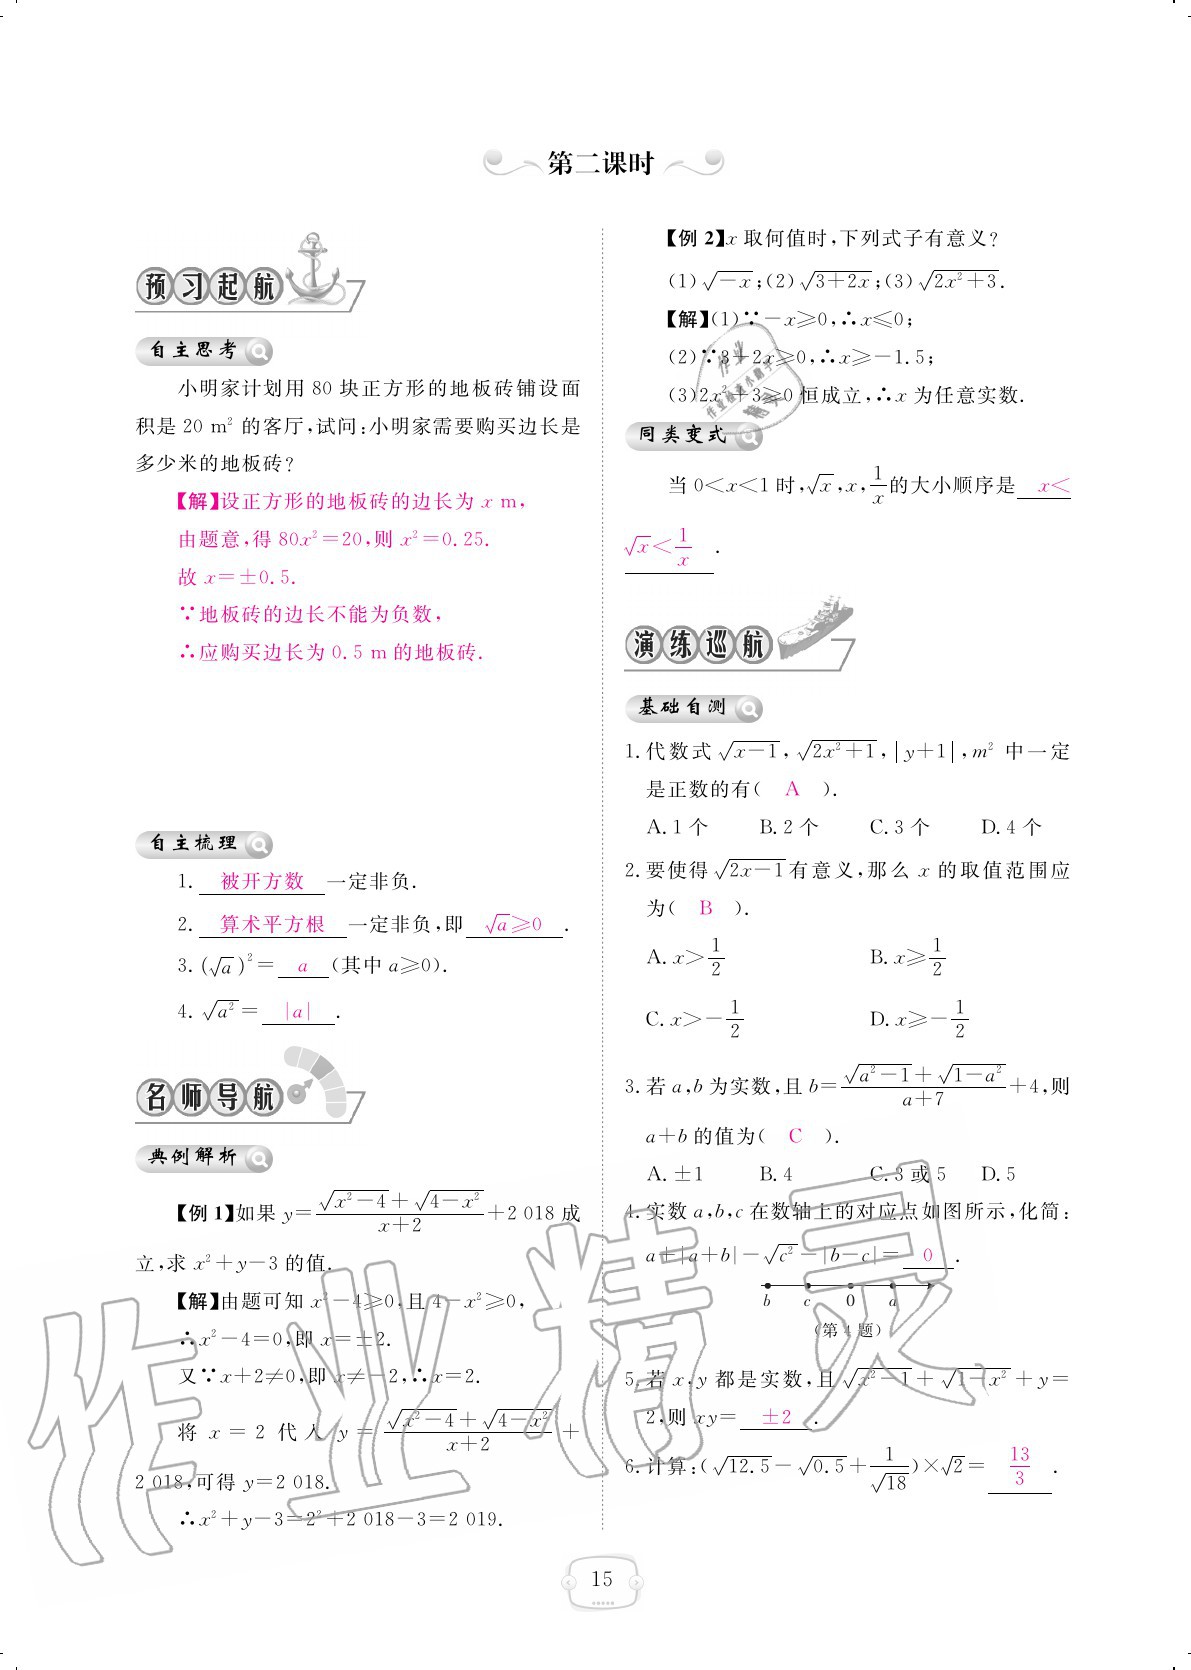 第二课时
预习起航
自主思考
小明家计划用 80 块正方形的地板砖铺设面
积是 20 m² 的客厅,试问:小明家需要购买边长是
多少米的地板砖?
【解】设正方形的地板砖的边长为 x m,
由题意,得 80x²=20,则 x²=0.25.
故 x=±0.5.
∵地板砖的边长不能为负数,
∴应购买边长为 0.5 m 的地板砖.
自主梳理
1. 被开方数 一定非负.
2. 算术平方根 一定非负,即 √a≥0 .
3. (√a)²= a (其中 a≥0).
4. √a²= |a| .
名师导航
典例解析
【例 1】如果 y=(√(x²-4)+√(4-x²))/(x+2)+2 018 成
立,求 x²+y-3 的值.
【解】由题可知 x²-4≥0,且 4-x²≥0,
∴x²-4=0,即 x=±2.
又∵x+2≠0,即 x≠-2,∴x=2.
将 x=2 代入 y=(√(x²-4)+√(4-x²))/(x+2)+
2 018,可得 y=2 018.
∴x²+y-3=2²+2 018-3=2 019.
【例 2】x 取何值时,下列式子有意义?
(1)√(-x);(2)√(3+2x);(3)√(2x²+3).
【解】(1)∵-x≥0,∴x≤0;
(2)∵3+2x≥0,∴x≥-1.5;
(3)2x²+3≥0 恒成立,∴x 为任意实数.
同类变式
当 0<x<1 时,√x,x,1/x的大小顺序是 x<
√x<1/x .
演练巡航
基础自测
1. 代数式 √(x-1),√(2x²+1),|y+1|,m² 中一定
是正数的有( A ).
A. 1 个 B. 2 个 C. 3 个 D. 4 个
2. 要使得 √(2x-1) 有意义,那么 x 的取值范围应
为( B ).
A. x>1/2 B. x≥1/2
C. x>-1/2 D. x≥-1/2
3. 若 a,b 为实数,且 b=(√(a²-1)+√(1-a²))/(a+7)+4,则
a+b 的值为( C ).
A. ±1 B. 4 C. 3 或 5 D. 5
4. 实数 a,b,c 在数轴上的对应点如图所示,化简:
a+|a+b|-√c²-|b-c|= 0 .
b c 0 a
(第 4 题)
5. 若 x,y 都是实数,且√(x²-1)+√(1-x²)+y=
2,则 xy= ±2 .
6. 计算:(√12.5-√0.5+1/√18)×√2= 13/3 .
15
作业精灵